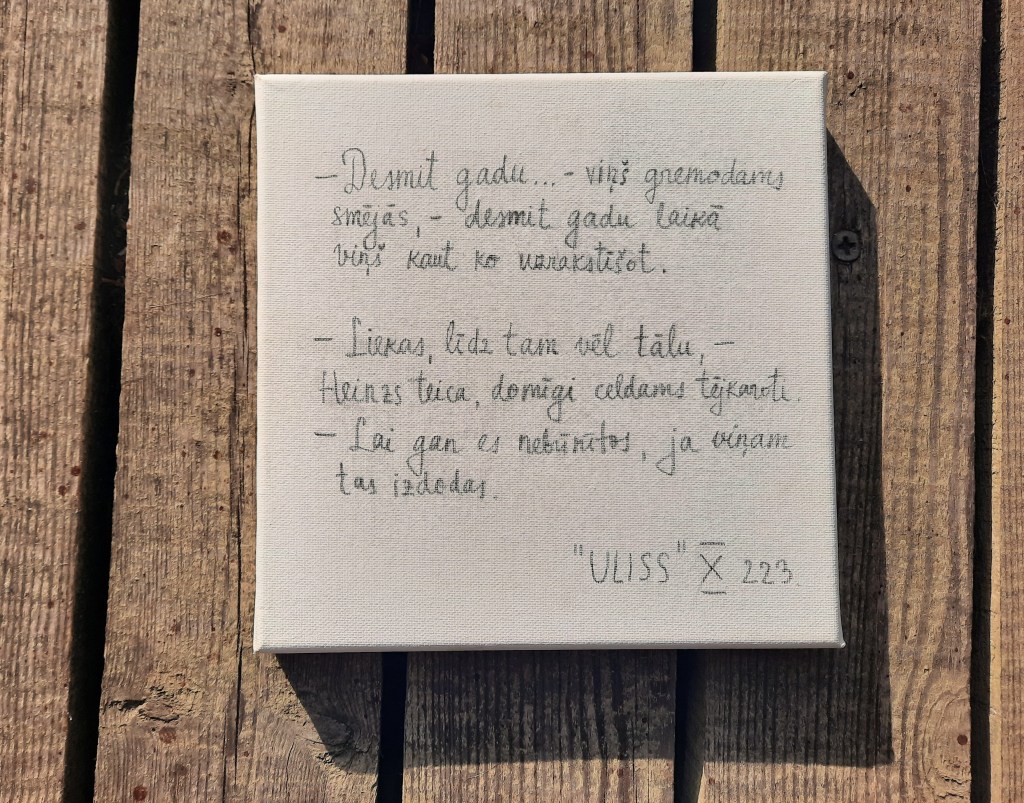 – Desmit gadu... - viņš gremodams
smējās, – desmit gadu laikā
viņš kaut ko uzrakstīšot.
– Liekas, līdz tam vēl tālu, –
Heinzs teica, domīgi celdams tējkaroti.
– Lai gan es nebūnītos, ja viņam
tas izdodas.
"ULISS" X 223.